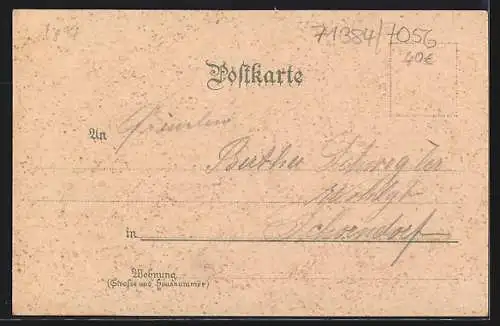 71384/7056
40€
Postkarte
An Fräulein
Bertha
wohlgb
in Schorndorf
Wohnung
(Straße und Hausnummer)